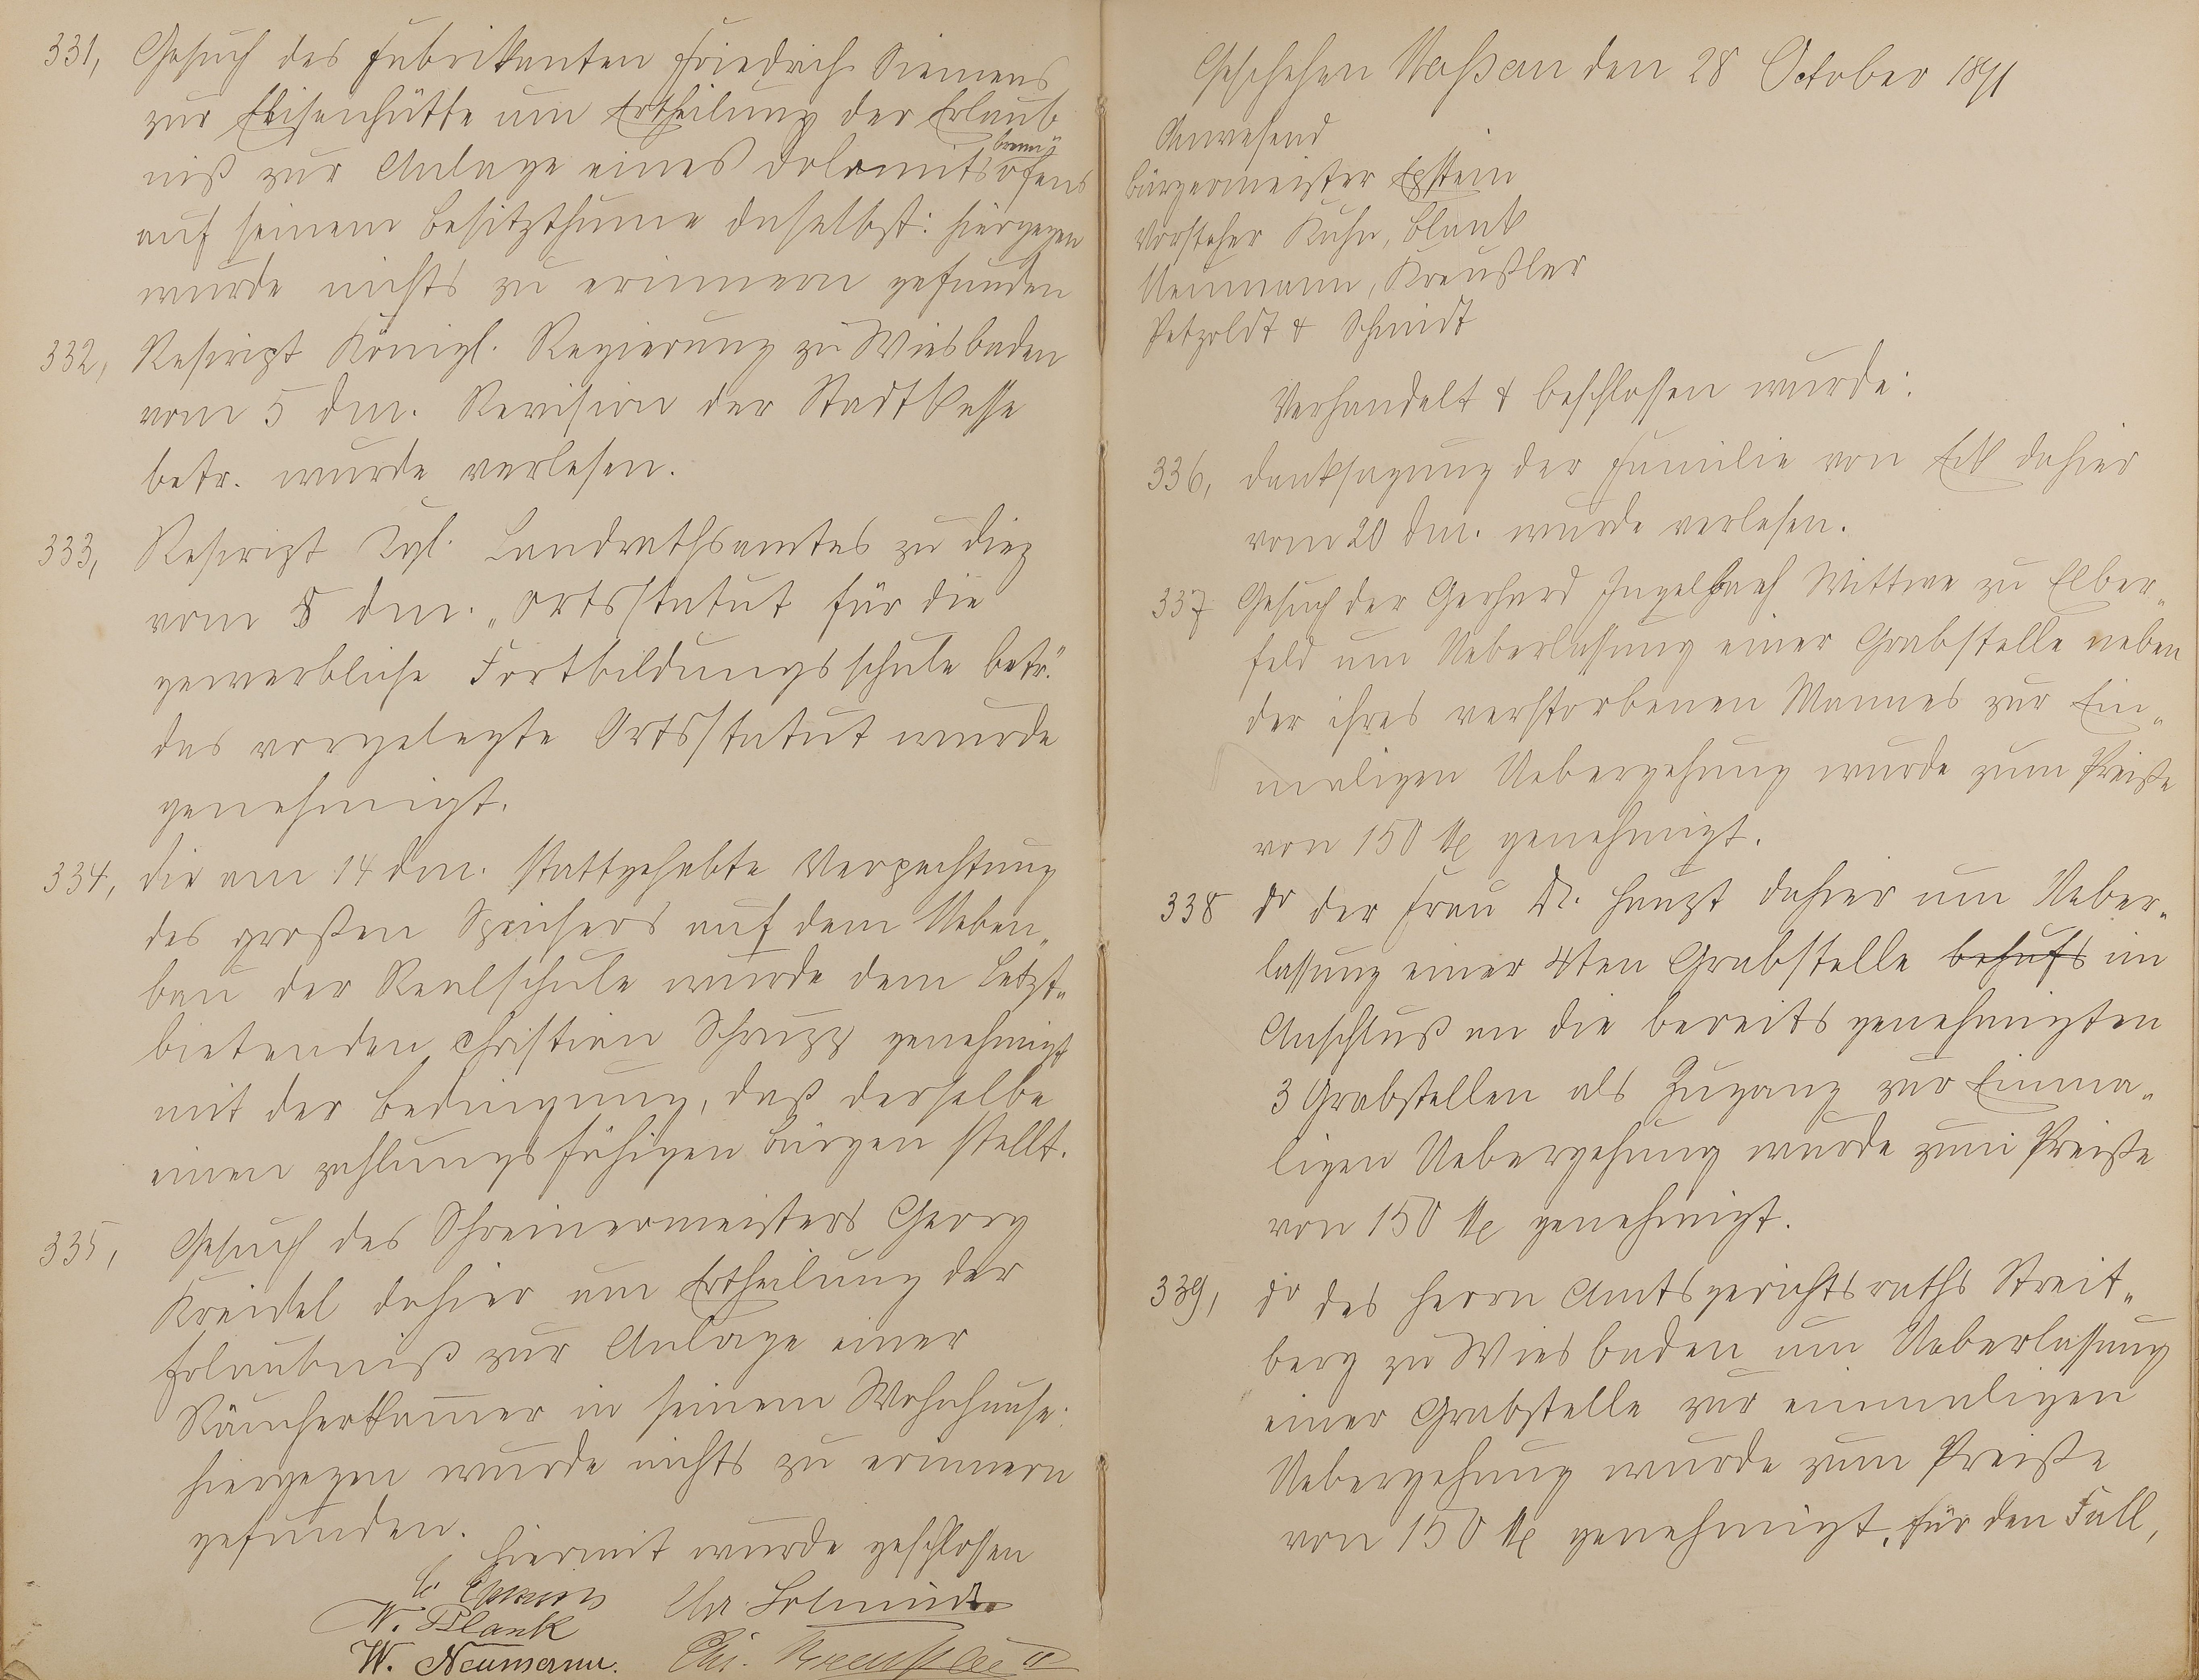 331, Gesuch des Fabrikanten Friedrich Siemens
zur Elisenhütte um Ertheilung der Erlaub
niß zur Anlage eines Dolomitsofens
brenn
auf seinem Besitzthume daselbst: hiergegen
wurde nichts zu erinnern gefunden
332, Rescript Königl. Regierung zu Wiesbaden
vom 5 dm. Revision der Stadtkasse
betr. wurde verlesen.
333, Rescript Kgl. Landrathsamtes zu Diez
vom 8 dm. "Ortsstatut für die
gewerbliche Fortbildungsschule betr."
das vorgelegte Ortsstatut wurde
genehmigt.
334, die am 14 dm. stattgehabte Verpachtung
des großen Speichers auf dem Neben„
bau der Realschule wurde dem Letzt„
bietenden Christian Schrupp genehmigt
mit der Bedingung, daß derselbe
einen zahlungsfähigen Bürgen stellt.
335, Gesuch des Schreinermeisters Georg
Kreidel dahier um Ertheilung der
Erlaubniß zur Anlage einer
Räucherkam̄er in seinem Wohnhause:
hiergegen wurde nichts zu erinnern
gefunden.
hiermit wurde geschlossen
W. Blank Chr. Schmidt
W. Neumann. Chr. Kreußler
Geschehen Naßau den 28 October 1891
Anwesend
Bürgermeister Epstein
Vorsteher Kuhn, Blank
Neumann, Kreußler
Petzoldt & Schmidt
Verhandelt & beschlossen wurde:
336, Danksagung der Familie von Eck dahier
vom 20 dm. wurde verlesen.
337 Gesuch der Gerhard Ingelbach Wittwe zu Elber„
feld um Ueberlassung einer Grabstelle neben
der ihres verstorbenen Mannes zur Ein„
maligen Uebergehung wurde zum Preiße
von 150 M genehmigt.
338 do der Frau Dr. Haupt dahier um Ueber„
lassung einer 4ten Grabstelle behufs im
Anschluß an die bereits genehmigten
3 Grabstellen als Zugang zur Einma„
ligen Uebergehung wurde zum Preiße
von 150 M genehmigt.
339, do des Herrn Amtsgerichtsraths Streit„
berg zu Wiesbaden um Ueberlassung
einer Grabstelle zur einmaligen
Uebergehung wurde zum Preiße
von 150 M genehmigt, für den Fall,